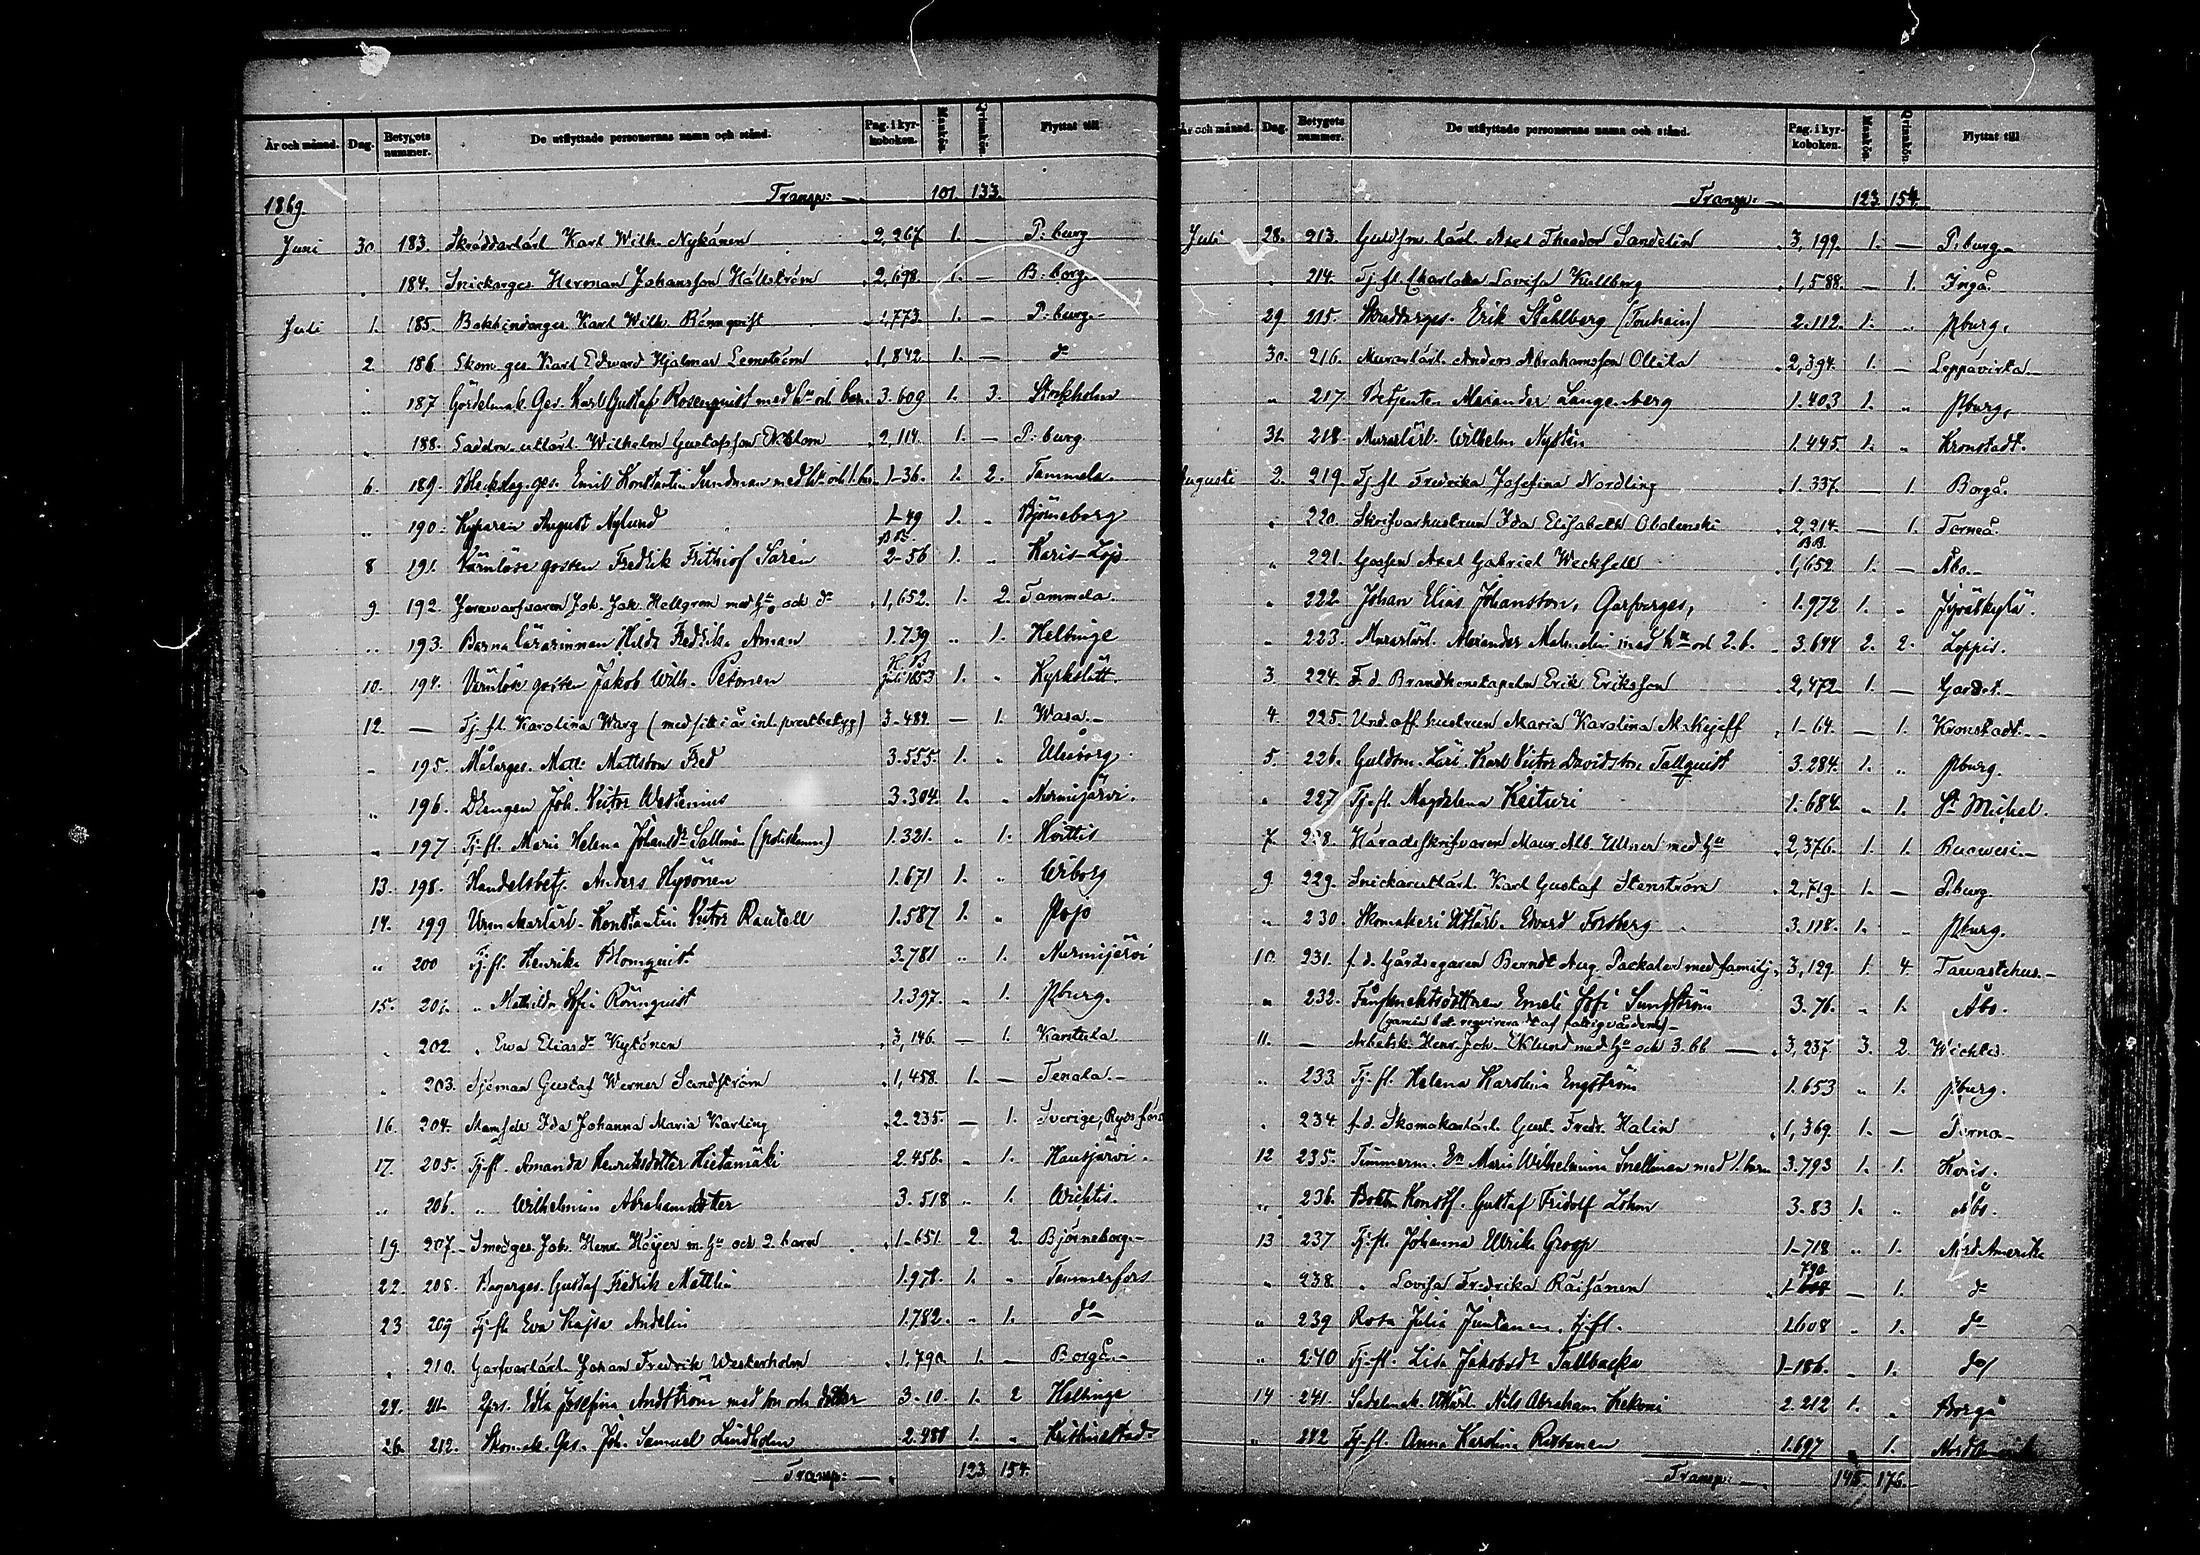 År och månad. Dag. Betygets nummer. De utflyttade personernas namn och stånd. Pag. i kyrkoboken. Mankön. Qvinnkön. Flyttat till
1869. Transp: 101. 133.
Juni 30. 183. Skräddarlärl Karl Wilh. Nykänen 2,267. 1. — P:burg
184. Snickarges. Herman Johansson Hällström 2,698. 1. — B:borg
Juli 1. 185. Bokbindarges. Karl Wilh. Rönnqvist 1,773. 1. — P:burg.
2. 186. Skom. ges. Karl Edward Hjalmar Lemström 1,842. 1. — do
" 187 Gördelmak. Ges. Karl Gustaf Rosenquist med hu och barn 3.609 1. 3. Stockholm
" 188. Wilhelm Gustafsson Ekblom 2,114. 1. — P:burg
6. 189. Blecksлag. ges. Emil Konstantin Sundman med hu och 1. barn 1-36. 1. 2. Tammela.
" 190. Kyparen August Nylund 1-49 1. " Björneborg
8 191. Värnlöse gossen Fredrik Frithiof Sarén 2-56 1. " Karis-Lojo
9. 192. Joh. Jak. Hellgren med hu och do 1,652. 1. 2. Tammela.
" 193. Barnalärarinnan Hilda Fredrika Aman 1.739 " 1. Helsinge
10. 194. Värnlöse gossen Jakob Wilh. Petonen 1853 1. " Kyrkslätt.
12. — Tj. fl. Karolina Warg (med sitt i år inl. prestbetyg) 3-484. — 1. Wasa.
" 195. Målarges. Matts Mattsson Fred 3.555. 1. " Uleåborg
" 196. Drengen Joh. Victor Westenius 3.304. 1. " Nurmijärvi.
" 197 Tj. fl. Maria Helena Johansdr Sallmén (poliskamm.) 1.321. " 1. Hvittis
13. 198. Handelsbetj. Anders Hyvönen 1.671 1. " Wiborg
14. 199 Urmakarlärl. Konstantin Victor Rautell 1.587 1. " Pojo
" 200 Tj. fl. Henrika Blomquist 3.781 " 1. Nurmijärvi
15. 201. " Mathilda Sofia Rönnquist 1.397. " 1. Pburg.
" 202. " Ewa Eliasdr Kytönen 3,146. — 1. Karstula
" 203. Sjöman Gustaf Werner Sandström 1,458. 1. — Tenala.
16. 204. Mamsell Ida Johanna Maria Karling 2-235. — 1. Sverige,
17. 205. Tj. fl. Amanda Henriksdotter Hietamäki 2.458. " 1. Hausjärvi.
" 206. " Wilhelmina Abrahamsdotter 3-518 " 1. Wichtis.
19. 207. Smedges. Joh. Henr. Höijer m. hu och 2. barn 1-651. 2. 2. Björneborg.
22. 208. Bagarges. Gustaf Fredrik Mattlin 1.978. 1. " Tammerfors
23 209 Tj. fl. Eva Kajsa Andelin 1.782. " 1. do
" 210. Garfvarlärl. Johan Fredrik Westerholm 1,790. 1. — Borgå.
24. 211. Edla Josefina Andström med son och dotter 3-10. 1. 2 Helsinge
26. 212. Skomak. Ges. Joh. Samuel Lindholm 2.481 1. " Kristinestad
Transp: 123. 154.
År och månad. Dag. Betygets nummer. De utflyttade personernas namn och stånd. Pag. i kyrkoboken. Mankön. Qvinnkön. Flyttat till
Transp: 123. 154.
Juli 28. 213. Guldsm. lärl. Axel Theodor Sandelin 3,199. 1. — P:burg
" 214. Tj. fl. Charlotta Lovisa Kullberg 1,588. — 1. Ingå.
29 215. Skräddarges. Erik Ståhlberg 2.112. 1. " Pburg.
30. 216. Murarlärl. Anders Abrahamsson Ollila 2,394. 1. — Leppävirta
" 217 Betjenten Alexander Langenberg 1.403 1. " Pburg.
31. 218. Murarlärl. Wilhelm Nystén 1.445. 1. " Kronstadt.
Augusti 2. 219. Tj. fl. Fredrika Josefina Nordling 1.337. — 1. Borgå.
" 220. Skrifvarhustrun Ida Elisabeth Obolenski 2,214. — 1. Torneå.
" 221. Gossen Axel Gabriel Wecksell BB 1,652 1. — Åbo.
" 222. Johan Elias Johansson, Garfvarges, 1.972 1. " Jyväskylä.
" 223. Murarlärl. Alexander Malmelin med hu och 2. b. 3.644 2. 2. Loppis.
3. 224. F. d. Brandkonstapeln Erik Eriksson 2,472. 1. — Gardet.
4. 225. Und. off. hustrun Maria Karolina Makejeff 1-64. — 1. Kronstadt.
5. 226. Guldsm. Lärl. Karl Victor Davidsson Tallquist 3.284. 1. " Pburg.
" 227 Tj. fl. Magdalena Keituri 1.684. " 1. St Michel.
7. 228. Häradsskrifvaren Maur. Alb. Ullner med hu 2,376. 1. 1. Ruovesi.
9. 229. Snickareutlärl. Karl Gustaf Stenström 2,719. 1. — P:burg
" 230 Skomakeri Utlärl. Edvard Forsberg 3.118. 1. " Pburg.
10. 231. f. d. Gårdsegaren Berndt Aug. Packalen med familj 3,129. 1. 4. Tawastehus.
" 232. Emeli Sofi Sundström 3.76. " 1. Åbo.
(gamla bet. reqvireradt af fattigvården)
11. — Arbetsk. Henr. Joh. Eklund med hu och 3. bb 3,237. 3. 2. Wichtis.
" 233 Tj. fl. Helena Karolina Engström 1.653 " 1. Pburg.
" 234. f. d. Skomakarlärl. Gust. Fredr. Halin 1,369. 1. — Perno
12 235. Timmerm. En Maria Wilhelmina Snellman med 1. barn 3.793 1. 1. Karis.
" 236. Gustaf Fridolf Löhm 3.83 1. " Åbo.
13 237 Tj. fl. Johanna Ulrika Groop 1-718 " 1. Nord Amerika
" 238. " Lovisa Fredrika Räisänen 790 — 1. do
" 239 Rosa Julia Juutanen, tj. fl. 1.608 " 1. do
" 240 Tj. fl. Lisa Jakobsdr Tallbacka 1-186. " 1. do
14 241. Sadelmak. Utlärl. Nils Abraham Kekoni 2.212 1. " Borgå
" 242 Tj. fl. Anna Karolina Ristonen 1.697 " 1.
Transp: 145. 176.